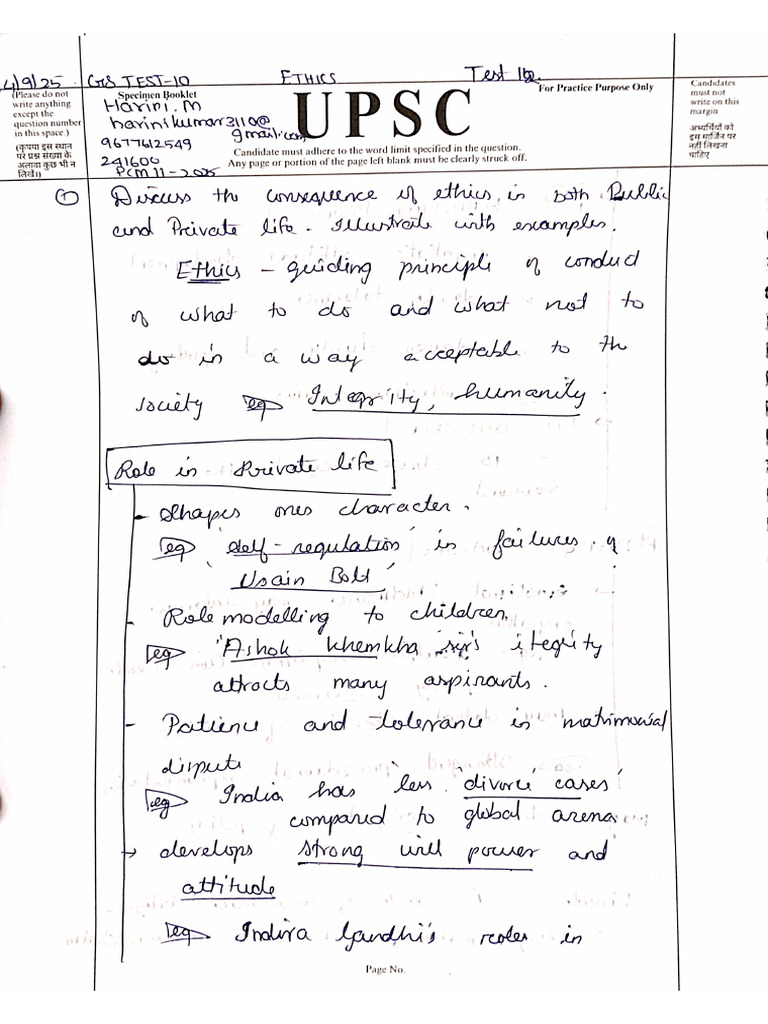 4/9/25 GS TEST-10 ETHICS Test 10
(Please do not write anything except the question number in this space.)
(कृपया इस स्थान पर प्रश्न संख्या के अलावा कुछ भी न लिखें।)
Specimen Booklet
Harini.M
harinikumar3110@
gmail.com
9677612549
241600
PCM 11-2025
UPSC
For Practice Purpose Only
Candidate must adhere to the word limit specified in the question.
Any page or portion of the page left blank must be clearly struck off.
Candidates must not write on this margin
अभ्यर्थियों को इस मार्जिन पर नहीं लिखना चाहिए
① Discuss the consequence of ethics in both Public
and Private life. Illustrate with examples.
Ethics – guiding principle of conduct
of what to do and what not to
do in a way acceptable to the
society eg Integrity, humanity.
Role in Private life
- Shapes ones character.
eg 'self-regulation' in failures of
'Usain Bolt'
- Role modelling to children
eg 'Ashok Khemkha sir's itegrity
attracts many aspirants.
- Patience and tolerance in matrimonial
dispute
eg India has less 'divorce cases'
compared to global arena
→ develops strong will power and
attitude
eg Indira Gandhi's roles in
Page No.